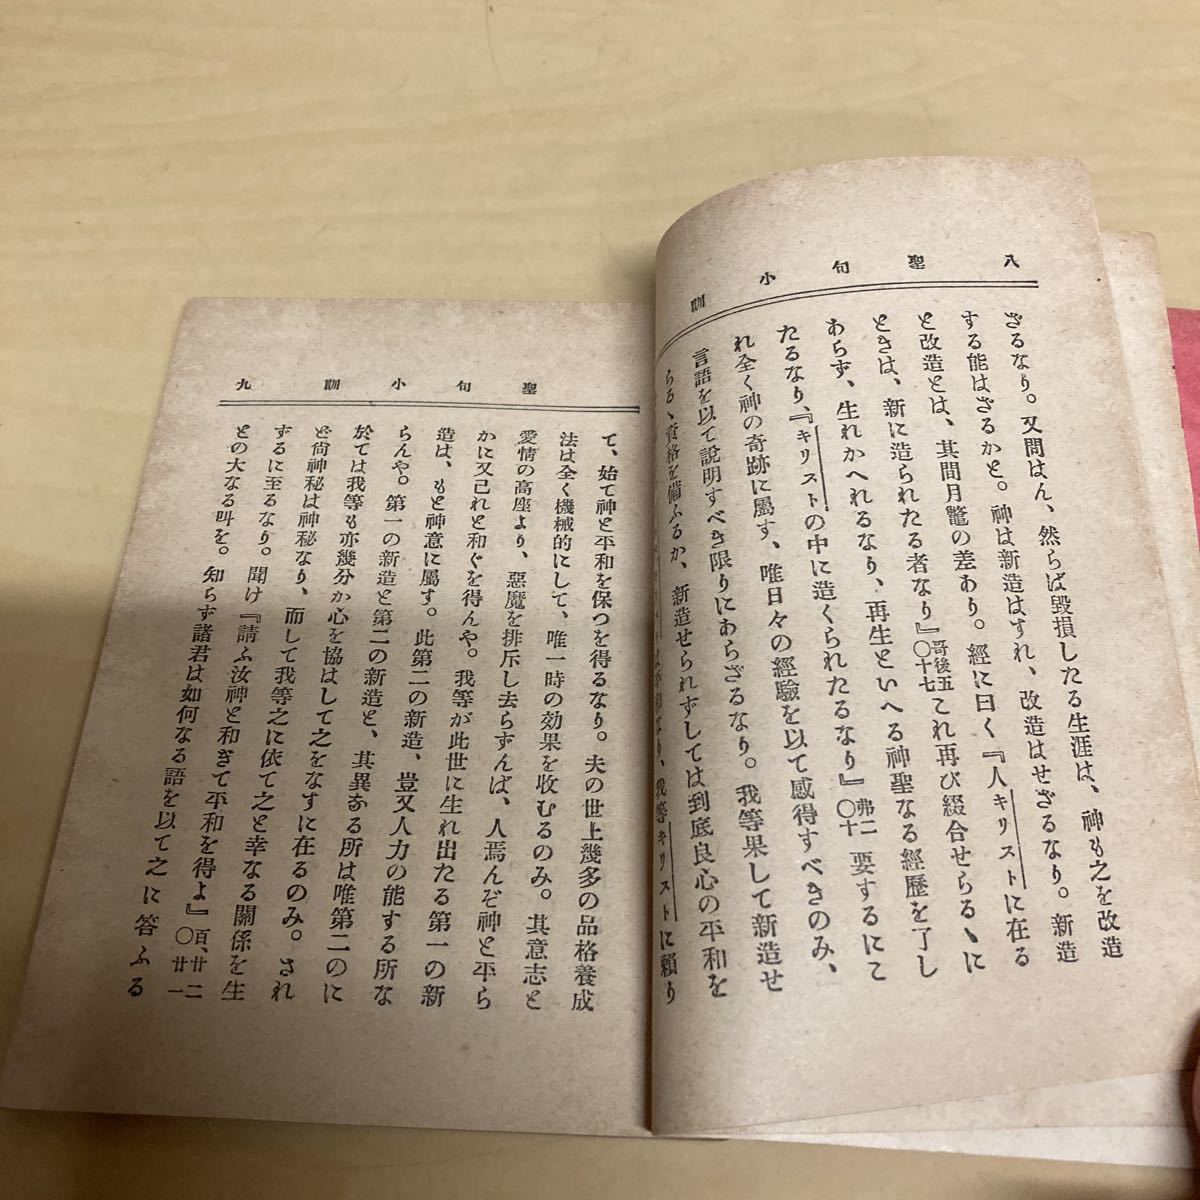 八 聖句小訓
ざるなり。又問はん、然らば毀損したる生涯は、神も之を改造
する能はざるかと。神は新造はすれ、改造はせざるなり。新造
と改造とは、其間月鼈の差あり。經に曰く『人キリストに在る
ときは、新に造られたる者なり』哥後五〇十七これ再び綴合せらるゝに
あらず、生れかへれるなり、再生といへる神聖なる經歴を了し
たるなり、『キリストの中に造くられたるなり』弗二〇十 要するにこ
れ全く神の奇跡に屬す、唯日々の經驗を以て感得すべきのみ、
言語を以て說明すべき限りにあらざるなり。我等果して新造せ
らるゝ資格を備ふるか、新造せられずしては到底良心の平和を
なり、我等キリストに賴り
聖句小訓 九
て、始て神と平和を保つを得るなり。夫の世上幾多の品格養成
法は全く機械的にして、唯一時の効果を收むるのみ。其意志と
愛情の高座より、惡魔を排斥し去らずんば、人焉んぞ神と平ら
かに又己れと和ぐを得んや。我等が此世に生れ出たる第一の新
造は、もと神意に屬す。此第二の新造、豈又人力の能する所な
らんや。第一の新造と第二の新造と、其異なる所は唯第二のに
於ては我等も亦幾分か心を協はして之をなすに在るのみ。され
ど尙神秘は神秘なり、而して我等之に依て之と幸なる關係を生
ずるに至るなり。聞け『請ふ汝神と和ぎて平和を得よ』百、廿二〇廿一
との大なる叫を。知らず諸君は如何なる語を以て之に答ふる